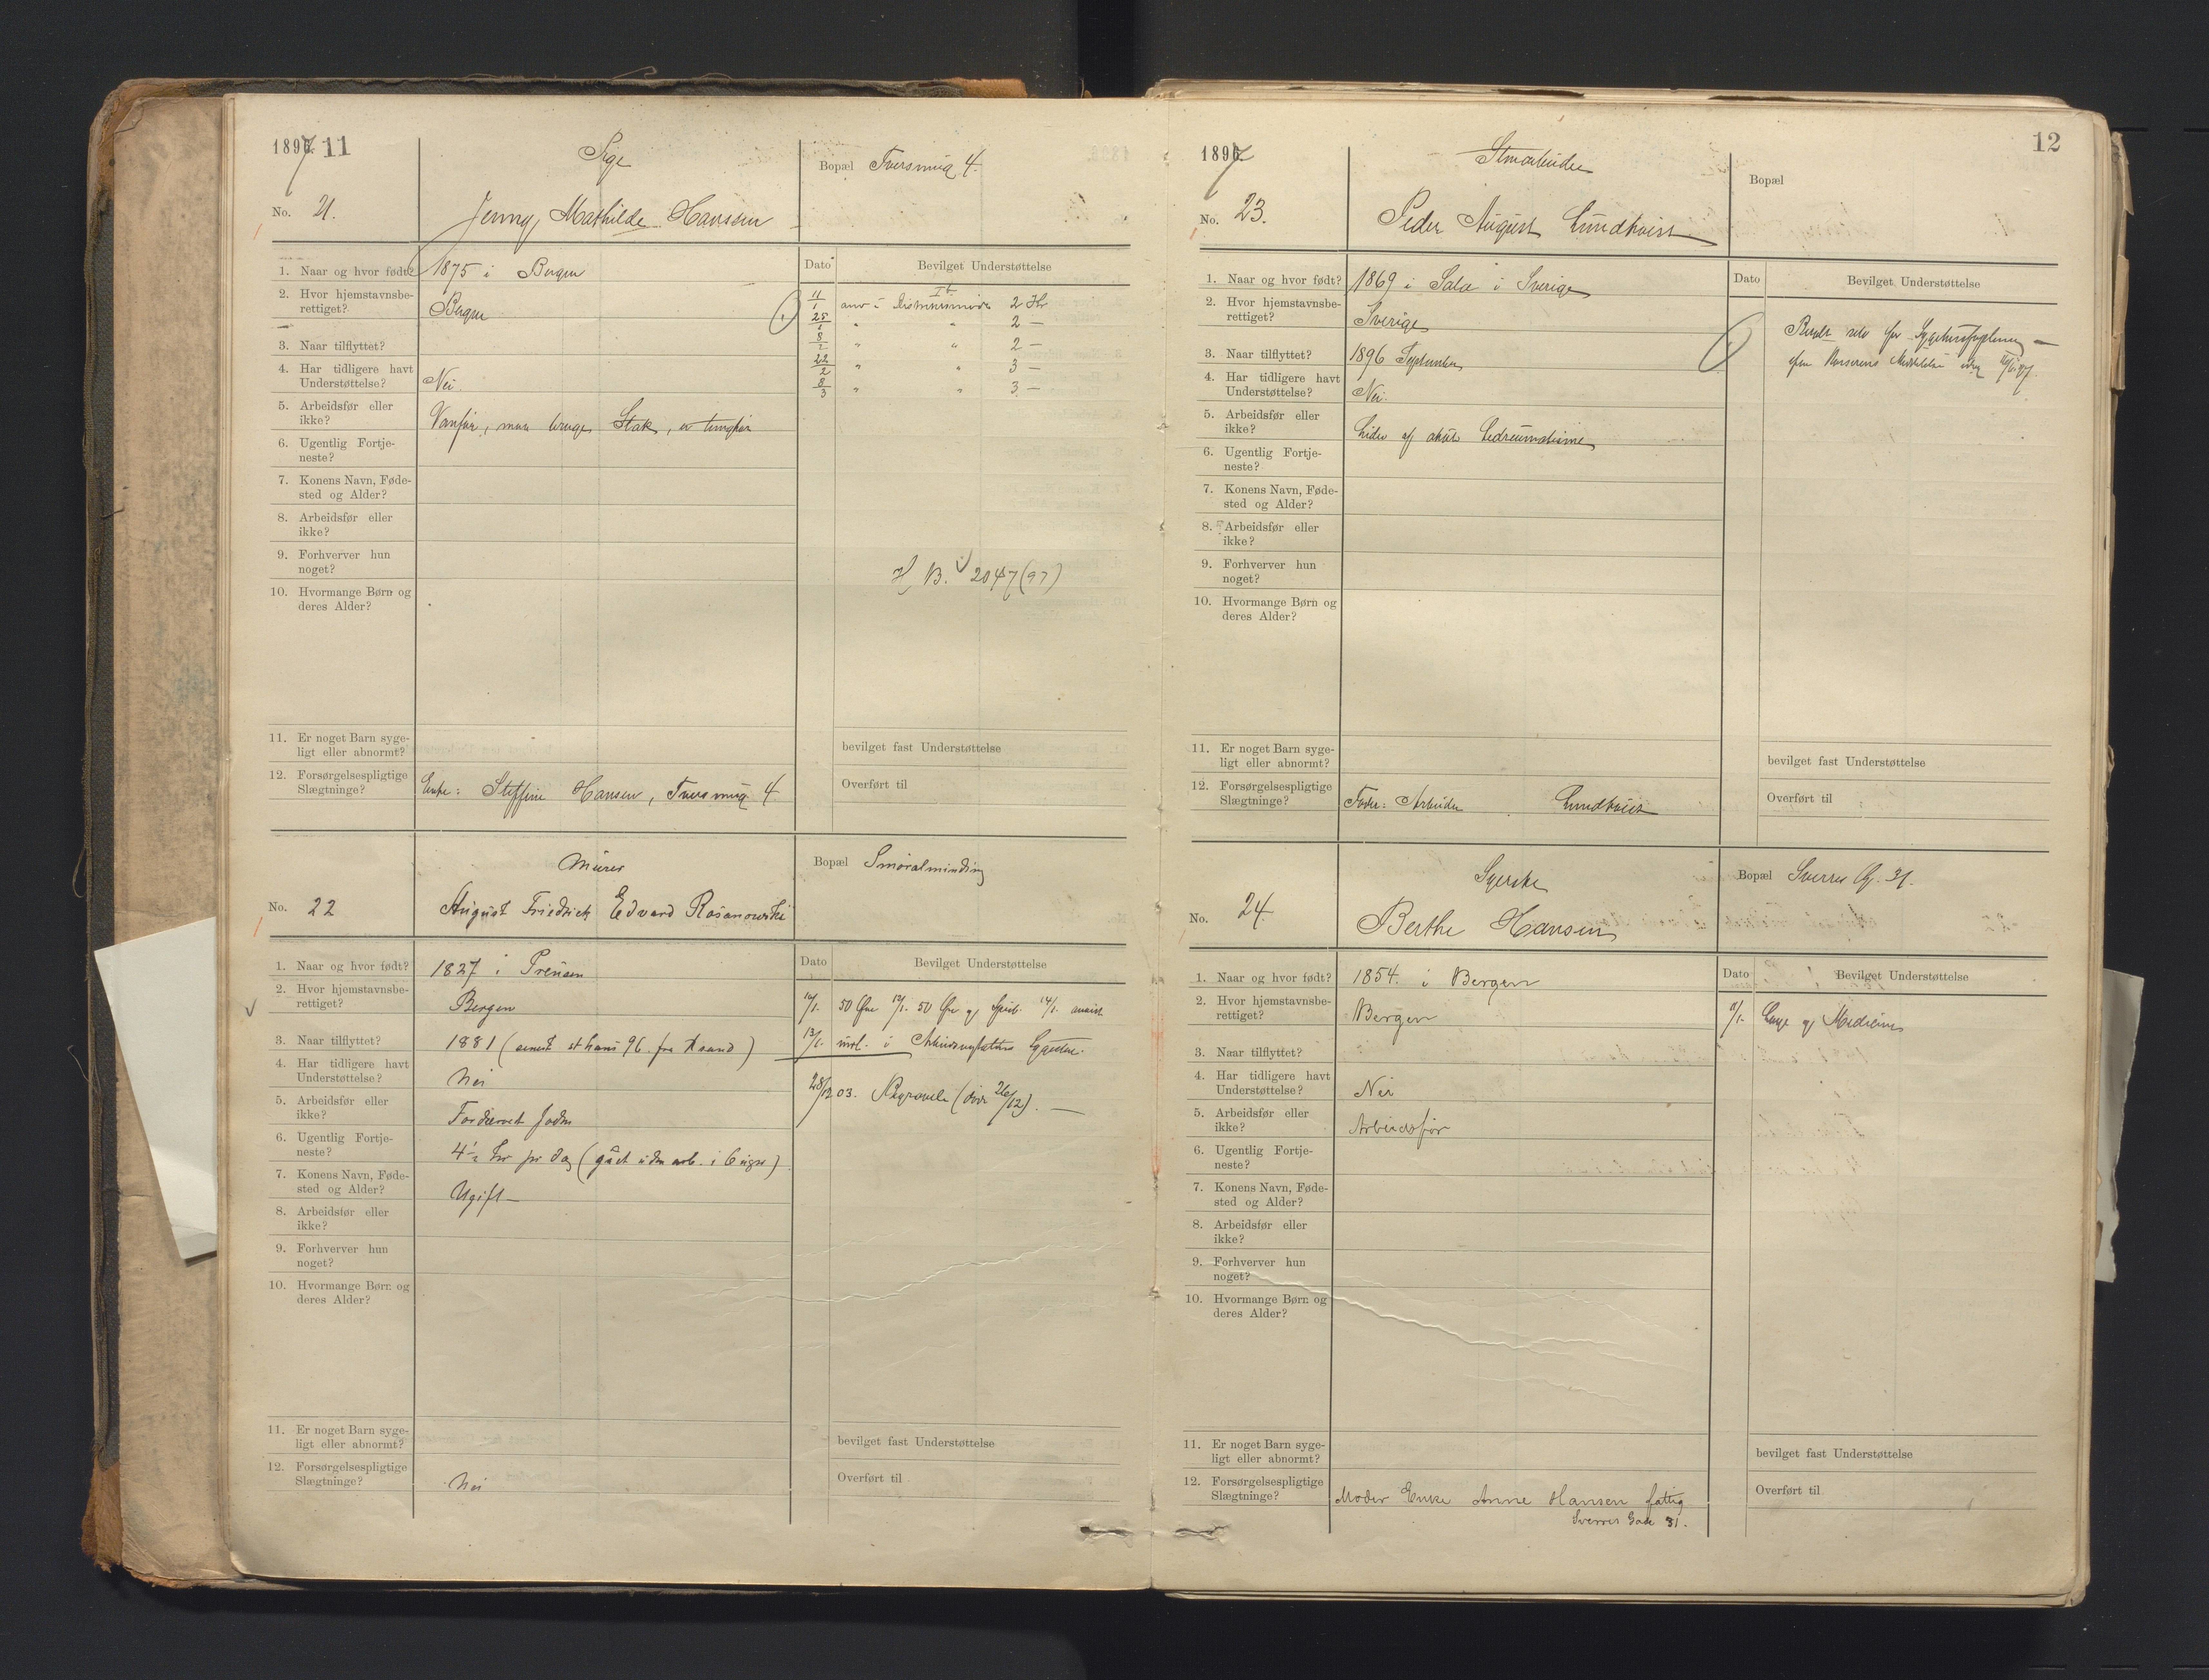 1897 11
Pige
Bopæl Tversmug 4.
No. 21.
Jenny Mathilde Hanssen
1. Naar og hvor født? 1875 i Bergen
2. Hvor hjemstavnsbe-
rettiget? Bergen
3. Naar tilflyttet?
4. Har tidligere havt
Understøttelse? Nei.
5. Arbeidsfør eller
ikke? Vanfør, maa bruge Stok, er tunghør
6. Ugentlig Fortje-
neste?
7. Konens Navn, Føde-
sted og Alder?
8. Arbeidsfør eller
ikke?
9. Forhverver hun
noget?
10. Hvormange Børn og
deres Alder?
11. Er noget Barn syge-
ligt eller abnormt?
12. Forsørgelsespligtige
Slægtninge? Enke: Steffine Hansen, Tversmug 4.
Dato Bevilget Understøttelse
11/1 2 Kr
25/1 " " 2 —
8/2 " " 2 —
22/2 " " 3 —
8/3 " " 3 —
H. B. 2047 (97)
bevilget fast Understøttelse
Overført til
Murer
Bopæl Smøralminding
No. 22
August Friedrich Edvard Rosanowski
1. Naar og hvor født? 1827 i Preusen
2. Hvor hjemstavnsbe-
rettiget? Bergen
3. Naar tilflyttet? 1881 (senest st hans 96 fra )
4. Har tidligere havt
Understøttelse? Nei
5. Arbeidsfør eller
ikke? Fordærvet
6. Ugentlig Fortje-
neste? pr dag (gået uden arb. i 6 uger)
7. Konens Navn, Føde-
sted og Alder? Ugift —
8. Arbeidsfør eller
ikke?
9. Forhverver hun
noget?
10. Hvormange Børn og
deres Alder?
11. Er noget Barn syge-
ligt eller abnormt?
12. Forsørgelsespligtige
Slægtninge? Nei
Dato Bevilget Understøttelse
50 Øre 50 Øre og 14/1.
13/1. indl. i
28/12 03. Begravelse (død 26/12). —
bevilget fast Understøttelse
Overført til
1897 12
Bopæl
No. 23.
Peder August Lundkvist
1. Naar og hvor født? 1869 i Sala i Sverige
2. Hvor hjemstavnsbe-
rettiget? Sverige
3. Naar tilflyttet? 1896 September
4. Har tidligere havt
Understøttelse? Nei.
5. Arbeidsfør eller
ikke? Lider af akut Ledreumatisme
6. Ugentlig Fortje-
neste?
7. Konens Navn, Føde-
sted og Alder?
8. Arbeidsfør eller
ikke?
9. Forhverver hun
noget?
10. Hvormange Børn og
deres Alder?
11. Er noget Barn syge-
ligt eller abnormt?
12. Forsørgelsespligtige
Slægtninge? Fader: Arbeider Lundkvist
Dato Bevilget Understøttelse
selv for —
Meddelelse
bevilget fast Understøttelse
Overført til
Syerske
Bopæl Sverres G. 31.
No. 24.
Berthe Hansen
1. Naar og hvor født? 1854. i Bergen
2. Hvor hjemstavnsbe-
rettiget? Bergen
3. Naar tilflyttet?
4. Har tidligere havt
Understøttelse? Nei
5. Arbeidsfør eller
ikke? Arbeidsfør
6. Ugentlig Fortje-
neste?
7. Konens Navn, Føde-
sted og Alder?
8. Arbeidsfør eller
ikke?
9. Forhverver hun
noget?
10. Hvormange Børn og
deres Alder?
11. Er noget Barn syge-
ligt eller abnormt?
12. Forsørgelsespligtige
Slægtninge? Moder Enke Anne Hansen fattig
Sverres Gade 31.
Dato Bevilget Understøttelse
Læge og Medicin
bevilget fast Understøttelse
Overført til